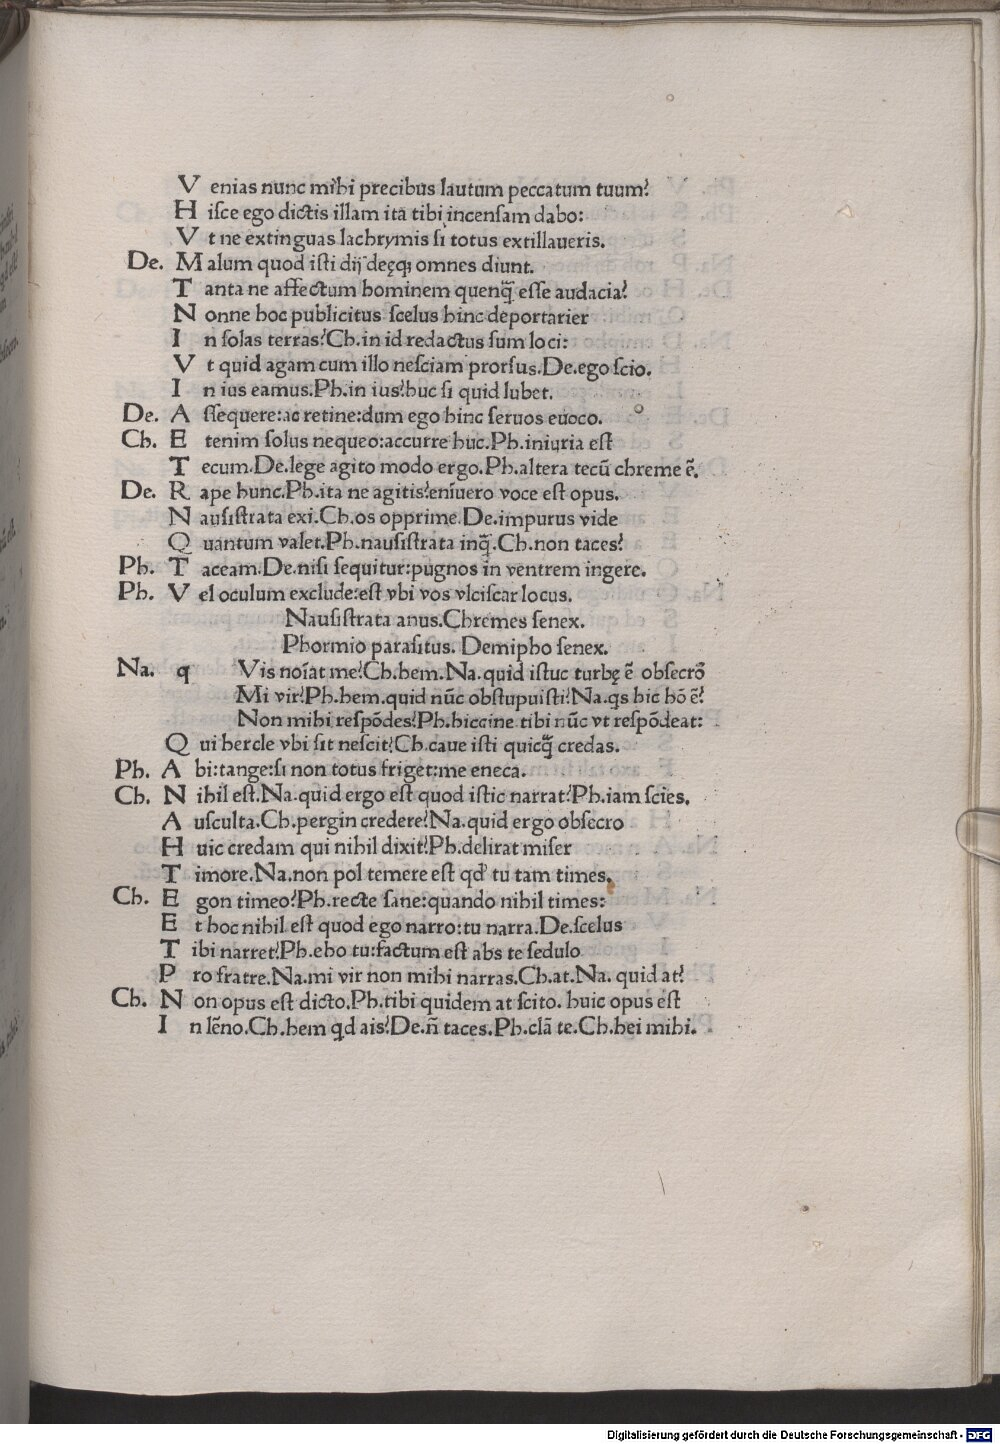 V enias nunc mihi precibus lautum peccatum tuum?
H isce ego dictis illam ita tibi incensam dabo:
V t ne extinguas lachrymis si totus extillaueris.
De. M alum quod isti dij deęq; omnes duint.
T anta ne affectum hominem quenq̃ esse audacia?
N onne hoc publicitus scelus hinc deportarier
I n solas terras?Ch.in id redactus sum loci:
V t quid agam cum illo nesciam prorsus.De.ego scio.
I n ius eamus.Ph.in ius?huc si quid lubet.
De. A ssequere:ac retine:dum ego hinc seruos euoco.
Ch. E tenim solus nequeo:accurre huc.Ph.iniuria est
T ecum.De.lege agito modo ergo.Ph.altera tecū chreme ē.
De. R ape hunc.Ph.ita ne agitis?enīuero voce est opus.
N ausistrata exi.Ch.os opprime.De.impurus vide
Q uantum valet.Ph.nausistrata inq̃.Ch.non taces?
Ph. T aceam.De.nisi sequitur:pugnos in ventrem ingere.
Ph. V el oculum exclude:est vbi vos vlciscar locus.
Nausistrata anus.Chremes senex.
Phormio parasitus. Demipho senex.
Na. q Vis noīat me?Ch.hem.Na.quid istuc turbę ē obsecrō
Mi vir?Ph.hem.quid nūc obstupuisti?Na.qs hic hō ē?
Non mihi respōdes?Ph.hiccine tibi nūc vt respōdeat:
Q ui hercle vbi sit nescit?Ch.caue isti quicq̃ credas.
Ph. A bi:tange:si non totus friget:me eneca.
Ch. N ihil est.Na.quid ergo est quod istic narrat?Ph.iam scies.
A usculta.Ch.pergin credere?Na.quid ergo obsecro
H uic credam qui nihil dixit?Ph.delirat miser
T imore.Na.non pol temere est qd' tu tam times.
Ch. E gon timeo?Ph.recte sane:quando nihil times:
E t hoc nihil est quod ego narro:tu narra.De.scelus
T ibi narret?Ph.eho tu:factum est abs te sedulo
P ro fratre.Na.mi vir non mihi narras.Ch.at.Na. quid at?
Ch. N on opus est dicto.Ph.tibi quidem at scito. huic opus est
I n lēno.Ch.hem qd ais?De.ñ taces.Ph.clā te.Ch.hei mihi.
Digitalisierung gefördert durch die Deutsche Forschungsgemeinschaft - DFG